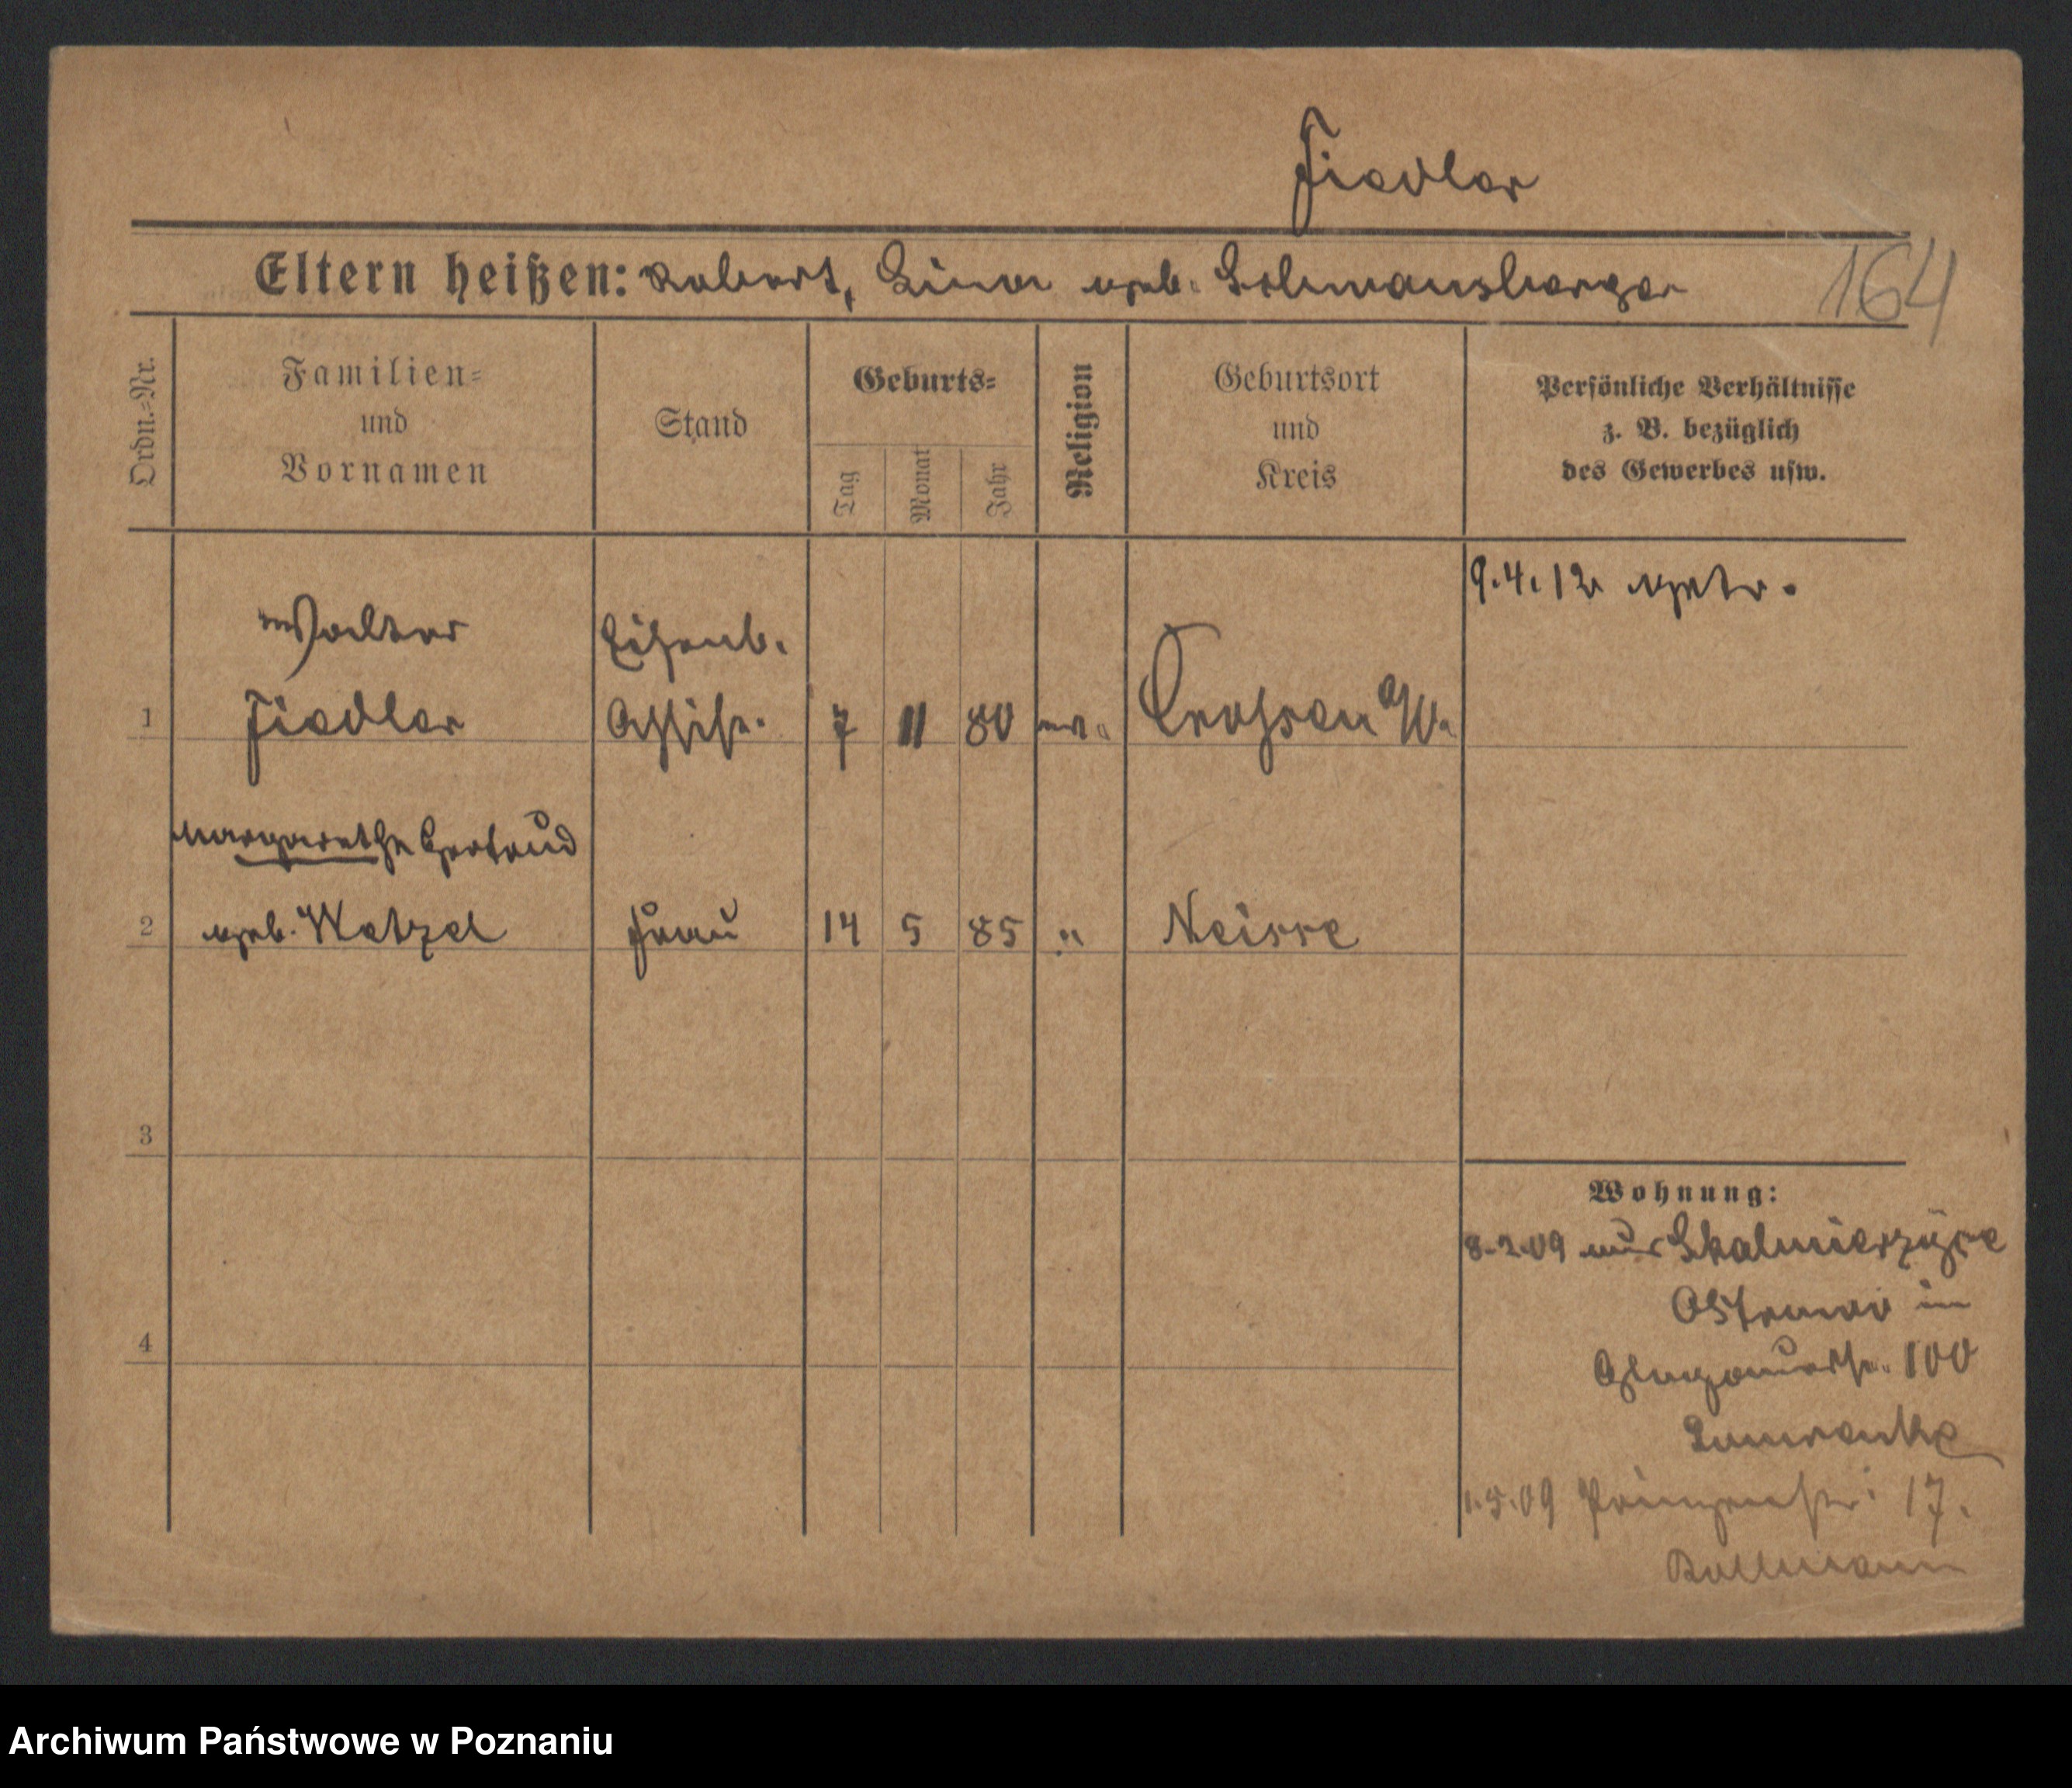 Fiedler
Eltern heißen: Robert, Lina geb. Lehmannsberger
164
Ordn.=Nr.
Familien=
und
Vornamen
Stand
Geburts=
Tag
Monat
Jahr
Religion
Geburtsort
und
Kreis
Persönliche Verhältnisse
z. B. bezüglich
des Gewerbes usw.
9.4.12 getr.
Walter Eisenb.
1 Fiedler Assist. 7 11 80 ev. Crossen a/O.
Margarethe Gertrud
2 geb. Watzel Frau 14 5 85 " Neisse
3
4
Wohnung:
8.2.09 aus Skalmierzyce
Ostrowo in
Glogauerstr. 100
1.5.09 Prinzenstr. 17.
Bollmann
Archiwum Państwowe w Poznaniu